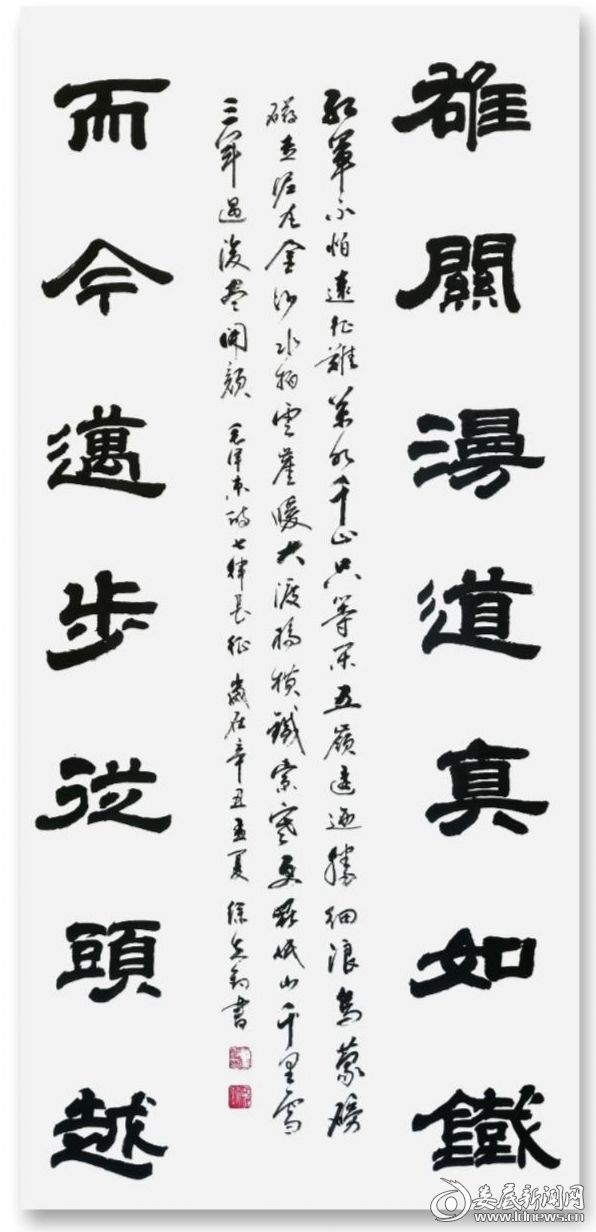 雄關漫道真如鐵
紅軍不怕遠征難萬水千山只等闲五嶺逶迤騰细浪烏蒙磅
礴走泥丸金沙水拍雲崖暖大渡橋横鐵索寒更喜岷山千里雪
三軍過後盡開顏 毛泽東詩七律長征 歲在辛丑孟夏 徐書
而今邁步從頭越
娄底新闻网
www.ldnews.cn